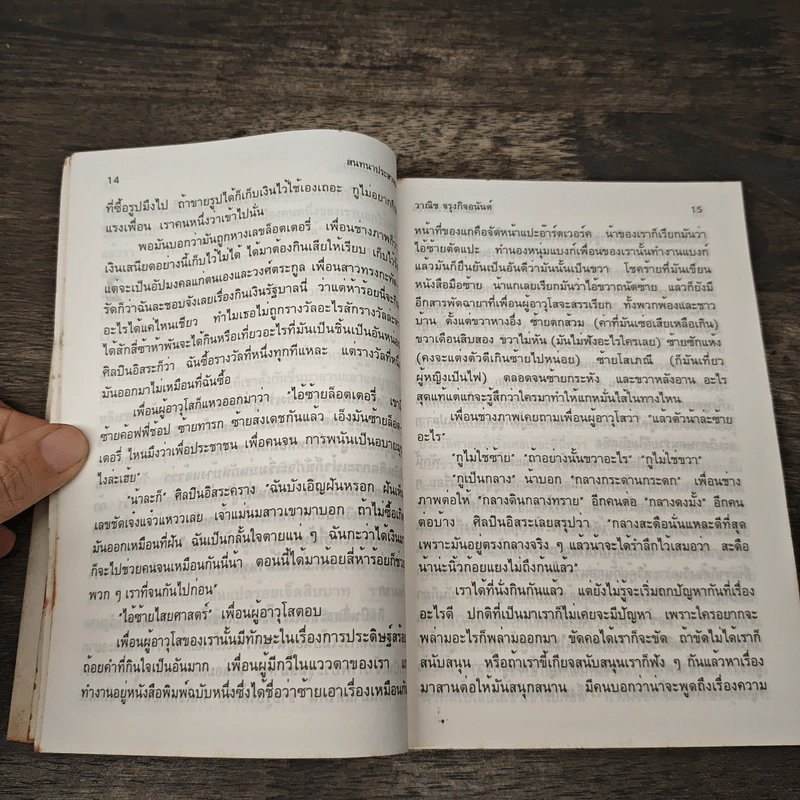 14
สนทนาประสา
ที่ซื้อรูปมึงไป ถ้าขายรูปได้ก็เก็บเงินไว้ใช้เองเถอะ กูไม่อยาก
แรงเพื่อน เราคนหนึ่งว่าเข้าไปนั่น
พอมันบอกว่ามันถูกหางเลขล็อตเตอรี่ เพื่อนช่างภาพก็
เงินเสนียดอย่างนี้เก็บไว้ไม่ได้ ได้มาต้องกินเสียให้เรียบ เก็บไว้
แต่จะเป็นอัปมงคลแก่ตนเองและวงศ์ตระกูล เพื่อนสาวทรงกะทัด
รัดก็ว่าฉันละชอบจังเลยเรื่องกินเงินรัฐบาลนี่ ว่าแต่ห้าร้อยนี่จะ
อะไรได้แค่ไหนเชียว ทำไมเธอไม่ถูกรางวัลอะไรสักรางวัลละ
ได้สักสี่ซ้าห้าพันจะได้กินหรือเที่ยวอะไรที่มันเป็นชิ้นเป็นอันหน่อย
ศิลปินอิสระก็ว่า ฉันซื้อรางวัลที่หนึ่งทุกทีแหละ แต่รางวัลที่
มันออกมาไม่เหมือนที่ฉันซื้อ
เพื่อนผู้อาวุโสก็แหวออกมาว่า "ไอ้ซ้ายล็อตเตอรี่
ซ้ายค้อฟฟี่ช้อป ซ้ายทารก ซ้ายส่งเดชกันแล้ว เอ็งมันซ้ายล็อต
เตอรี่ ไหนมึงว่าเพื่อประชาชน เพื่อคนจน การพนันเป็นอบายมุข
ไงล่ะเฮ้ย"
"น่าละก็" ศิลปินอิสระคราง "ฉันบังเอิญฝันหรอก ฝันเห็น
เลขชัดเจ๋งแจ๋วแหววเลย เจ้าแม่นมสาวเขามาบอก ถ้าไม่ซื้อเกิด
มันออกเหมือนที่ฝัน ฉันเป็นกลั้นใจตายแน่ ๆ ฉันกะว่าได้เงินมา
ก็จะไปช่วยคนจนเหมือนกันนี่น้า ตอนนี้ได้มาน้อยสี่ห้าร้อยก็ช่วย
พวก ๆ เราที่จนกันไปก่อน"
"ไอ้ซ้ายไสยศาสตร์" เพื่อนผู้อาวุโสตอบ
เพื่อนผู้อาวุโสของเรานั้นมีทักษะในเรื่องการประดิษฐ์สร้อย
ถ้อยคำที่กินใจเป็นอันมาก เพื่อนผู้มีกวีในแววตาของเรา
ทำงานอยู่หนังสือพิมพ์ฉบับหนึ่งซึ่งได้ชื่อว่าซ้ายเอาเรื่องเหมือนกัน
วาณิช จรุงกิจอนันต์
15
หน้าที่ของแกคือจัดหน้าแปะอ๊าร์ตเวอร์ค น้าของเราก็เรียกมันว่า
ไอ้ซ้ายตัดแปะ ทำนองหนุ่มแบงก์เพื่อนของเรานั้นทำงานแบงก์
แล้วมันก็ยืนยันเป็นอันดีว่ามันนั้นเป็นขวา โชคร้ายที่มันเขียน
หนังสือมือซ้าย น้าแกเลยเรียกมันว่าไอ้ขวาถนัดซ้าย แล้วก็ยังมี
อีกสารพัดฉายาที่เพื่อนผู้อาวุโสจะสรรเรียก ทั้งพวกพ้องและชาว
บ้าน ตั้งแต่ขวาหางอึ่ง ซ้ายดกส้วม (ค่าที่มันเซอเสียเหลือเกิน)
ขวาเดือนสิบสอง ขวาไม่หัน (มันไม่ฟังอะไรใครเลย) ซ้ายซักแห้ง
(คงจะแต่งตัวดีเกินซ้ายไปหน่อย) ซ้ายโสเภณี (ก็มันเที่ยว
ผู้หญิงเป็นไฟ) ตลอดจนซ้ายกระหัง และขวาหลังอาน อะไร
สุดแท้แต่แกจะรู้สึกว่าใครมาทำให้แกหมั่นไส้ในทางไหน
เพื่อนช่างภาพเคยถามเพื่อนผู้อาวุโสว่า "แล้วตัวน้าล่ะซ้าย
อะไร"
"กูไม่ใช่ซ้าย" "ถ้าอย่างนั้นขวาอะไร" "กูไม่ใช่ขวา"
"กูเป็นกลาง" น้าบอก "กลางกระด้านกระดก" เพื่อนช่าง
ภาพต่อให้ "กลางดินกลางทราย" อีกคนต่อ "กลางดงมั้ง" อีกคน
ต่อบ้าง ศิลปินอิสระเลยสรุปว่า "กลางสะดือนั่นแหละดีที่สุด
เพราะมันอยู่ตรงกลางจริง ๆ แล้วน้าจะได้รำลึกไว้เสมอว่า สะดือ
น้าน่ะนิ้วกอยแยงไม่ถึงก้นแล้ว"
เราได้ที่นั่งกินกันแล้ว แต่ยังไม่รู้จะเริ่มถกปัญหากันที่เรื่อง
อะไรดี ปกติที่เป็นมาเราก็ไม่เคยจะมีปัญหา เพราะใครอยากจะ
พล่ามอะไรก็พล่ามออกมา ขัดคอได้เราก็จะขัด ถ้าขัดไม่ได้เราก็
สนับสนุน หรือถ้าเราขี้เกียจสนับสนุนเราก็ฟัง ๆ กันแล้วหาเรื่อง
มาสานต่อให้มันสนุกสนาน มีคนบอกว่าน่าจะพูดถึงเรื่องความ